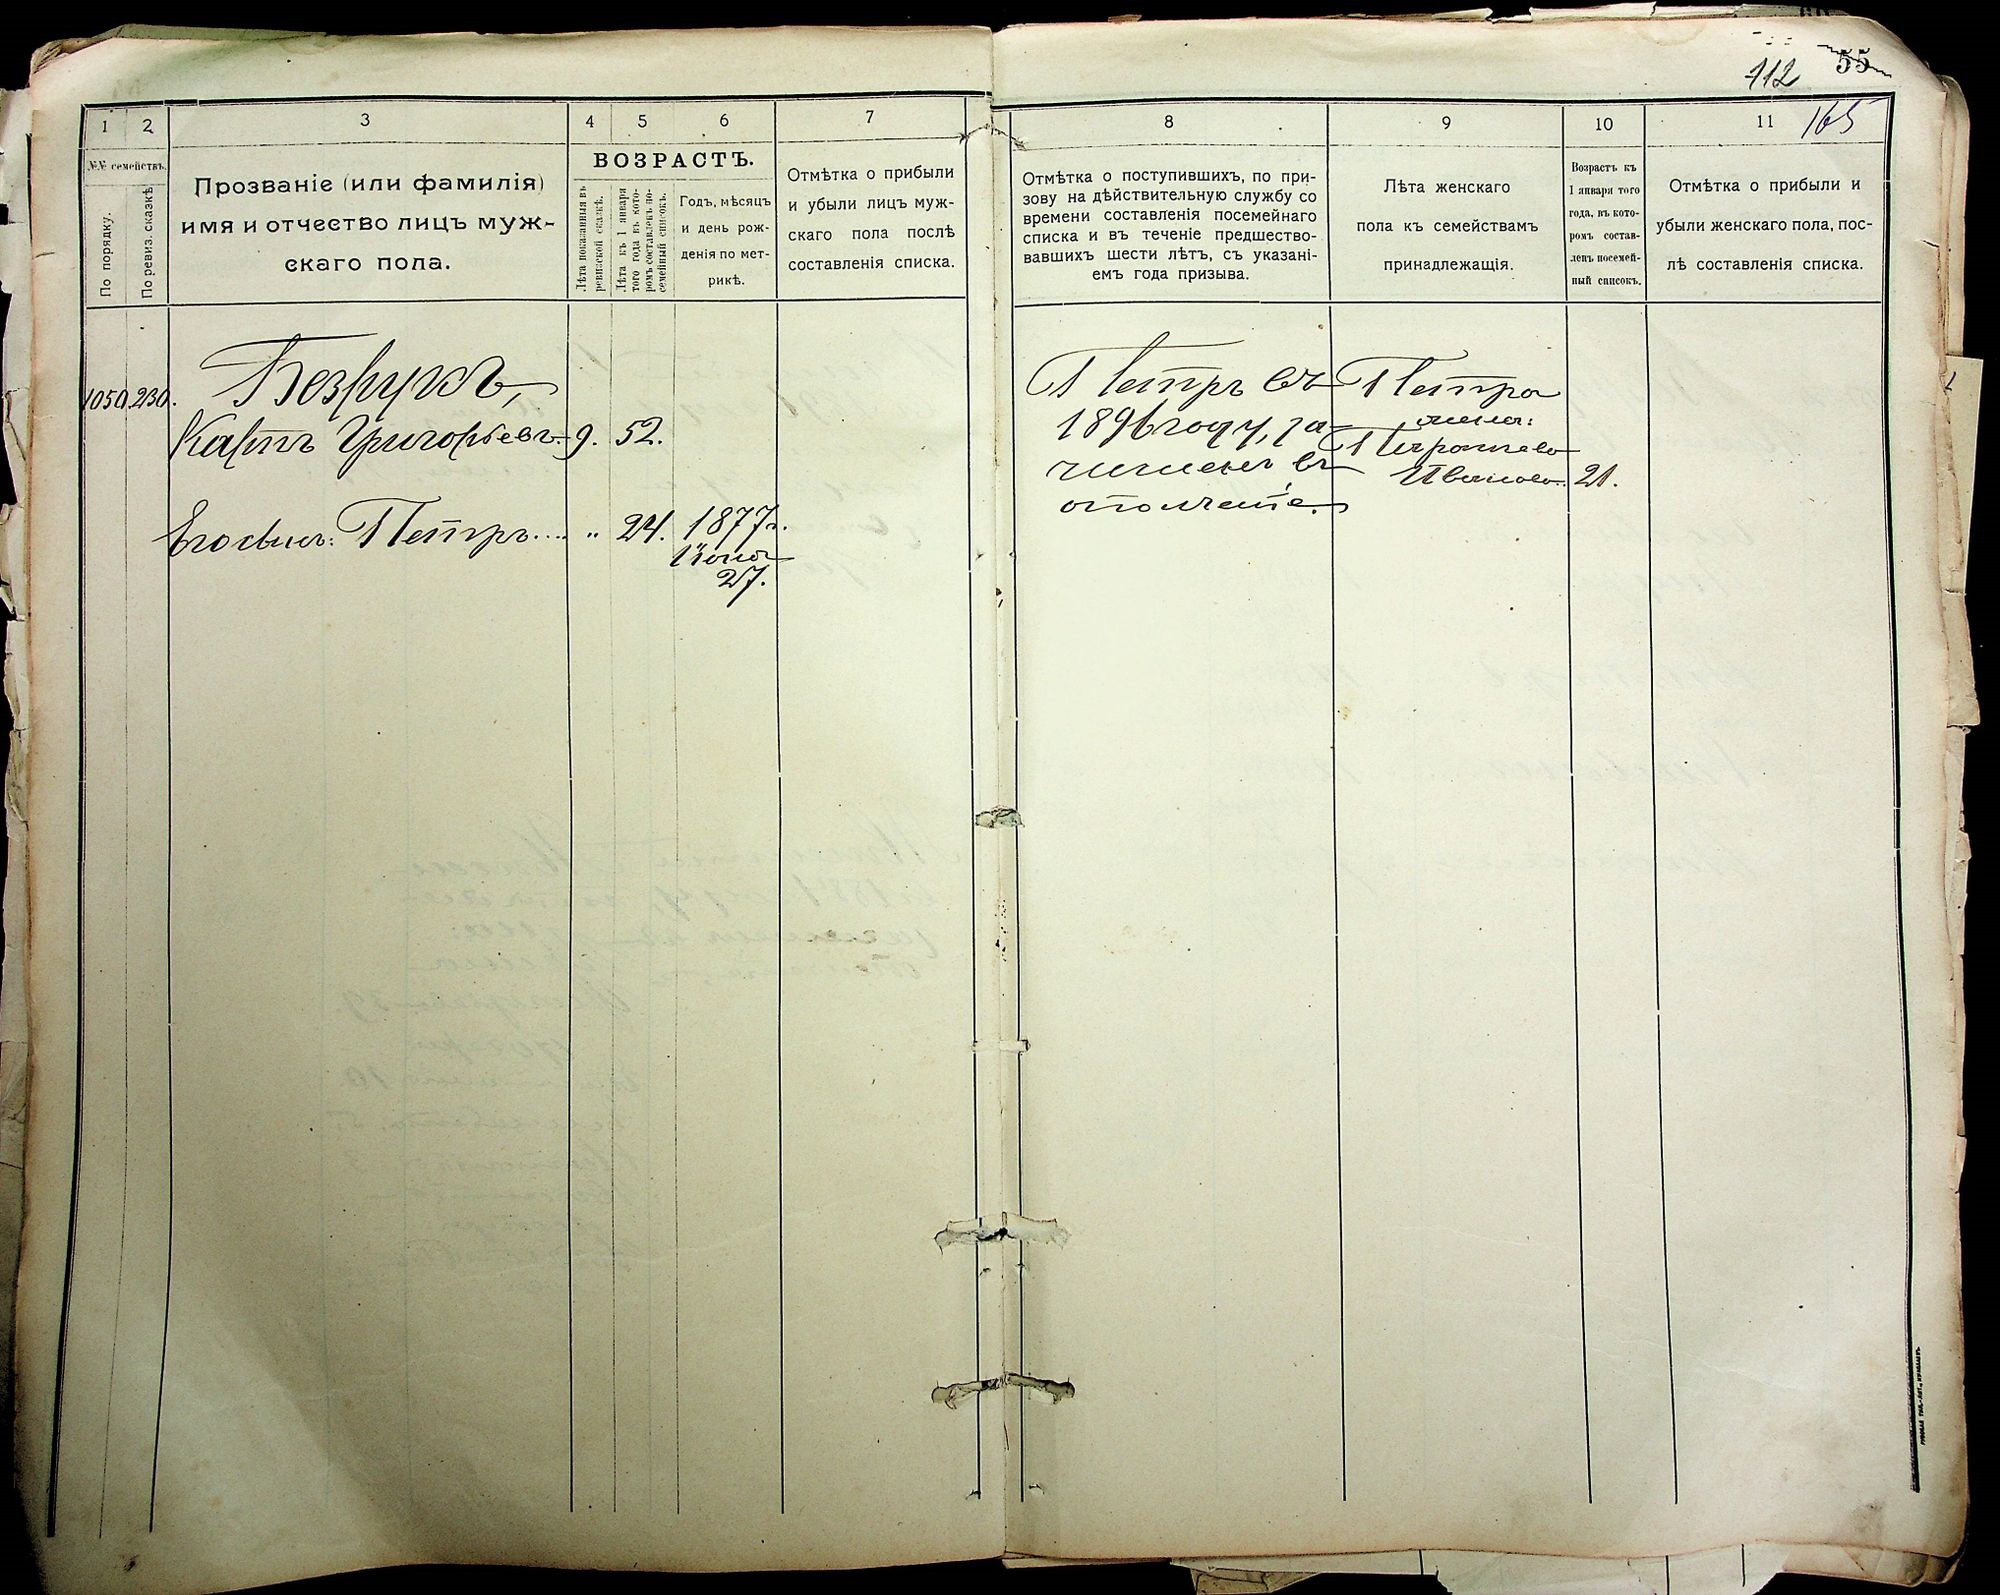 112 55
165
1 2 3 4 5 6 7
№№ семействъ.
По порядку.
По ревиз. сказкѣ.
Прозваніе (или фамилія)
имя и отчество лицъ муж-
скаго пола.
ВОЗРАСТЪ.
Лѣта показанныя въ
ревизской сказкѣ.
Лѣта къ 1 января
того года въ кото-
ромъ составленъ по-
семейный списокъ.
Годъ, мѣсяцъ
и день рож-
денія по мет-
рикѣ.
Отмѣтка о прибыли
и убыли лицъ муж-
скаго пола послѣ
составленія списка.
1050. 230. Безрукъ,
Карпъ Григорьевъ 9. 52.
Его сынъ: Петръ.... " 24. 1877 г.
Іюня
27.
8 9 10 11
Отмѣтка о поступившихъ, по при-
зову на дѣйствительную службу со
времени составленія посемейнаго
списка и въ теченіе предшество-
вавшихъ шести лѣтъ, съ указані-
емъ года призыва.
Лѣта женскаго
пола къ семействамъ
принадлежащія.
Возрастъ къ
1 января того
года, въ кото-
ромъ состав-
ленъ посемей-
ный списокъ.
Отмѣтка о прибыли и
убыли женскаго пола, пос-
лѣ составленія списка.
Петръ въ
1896 году, за
численъ въ
ополченіе.
Петра
жена:
Иванова. 21.